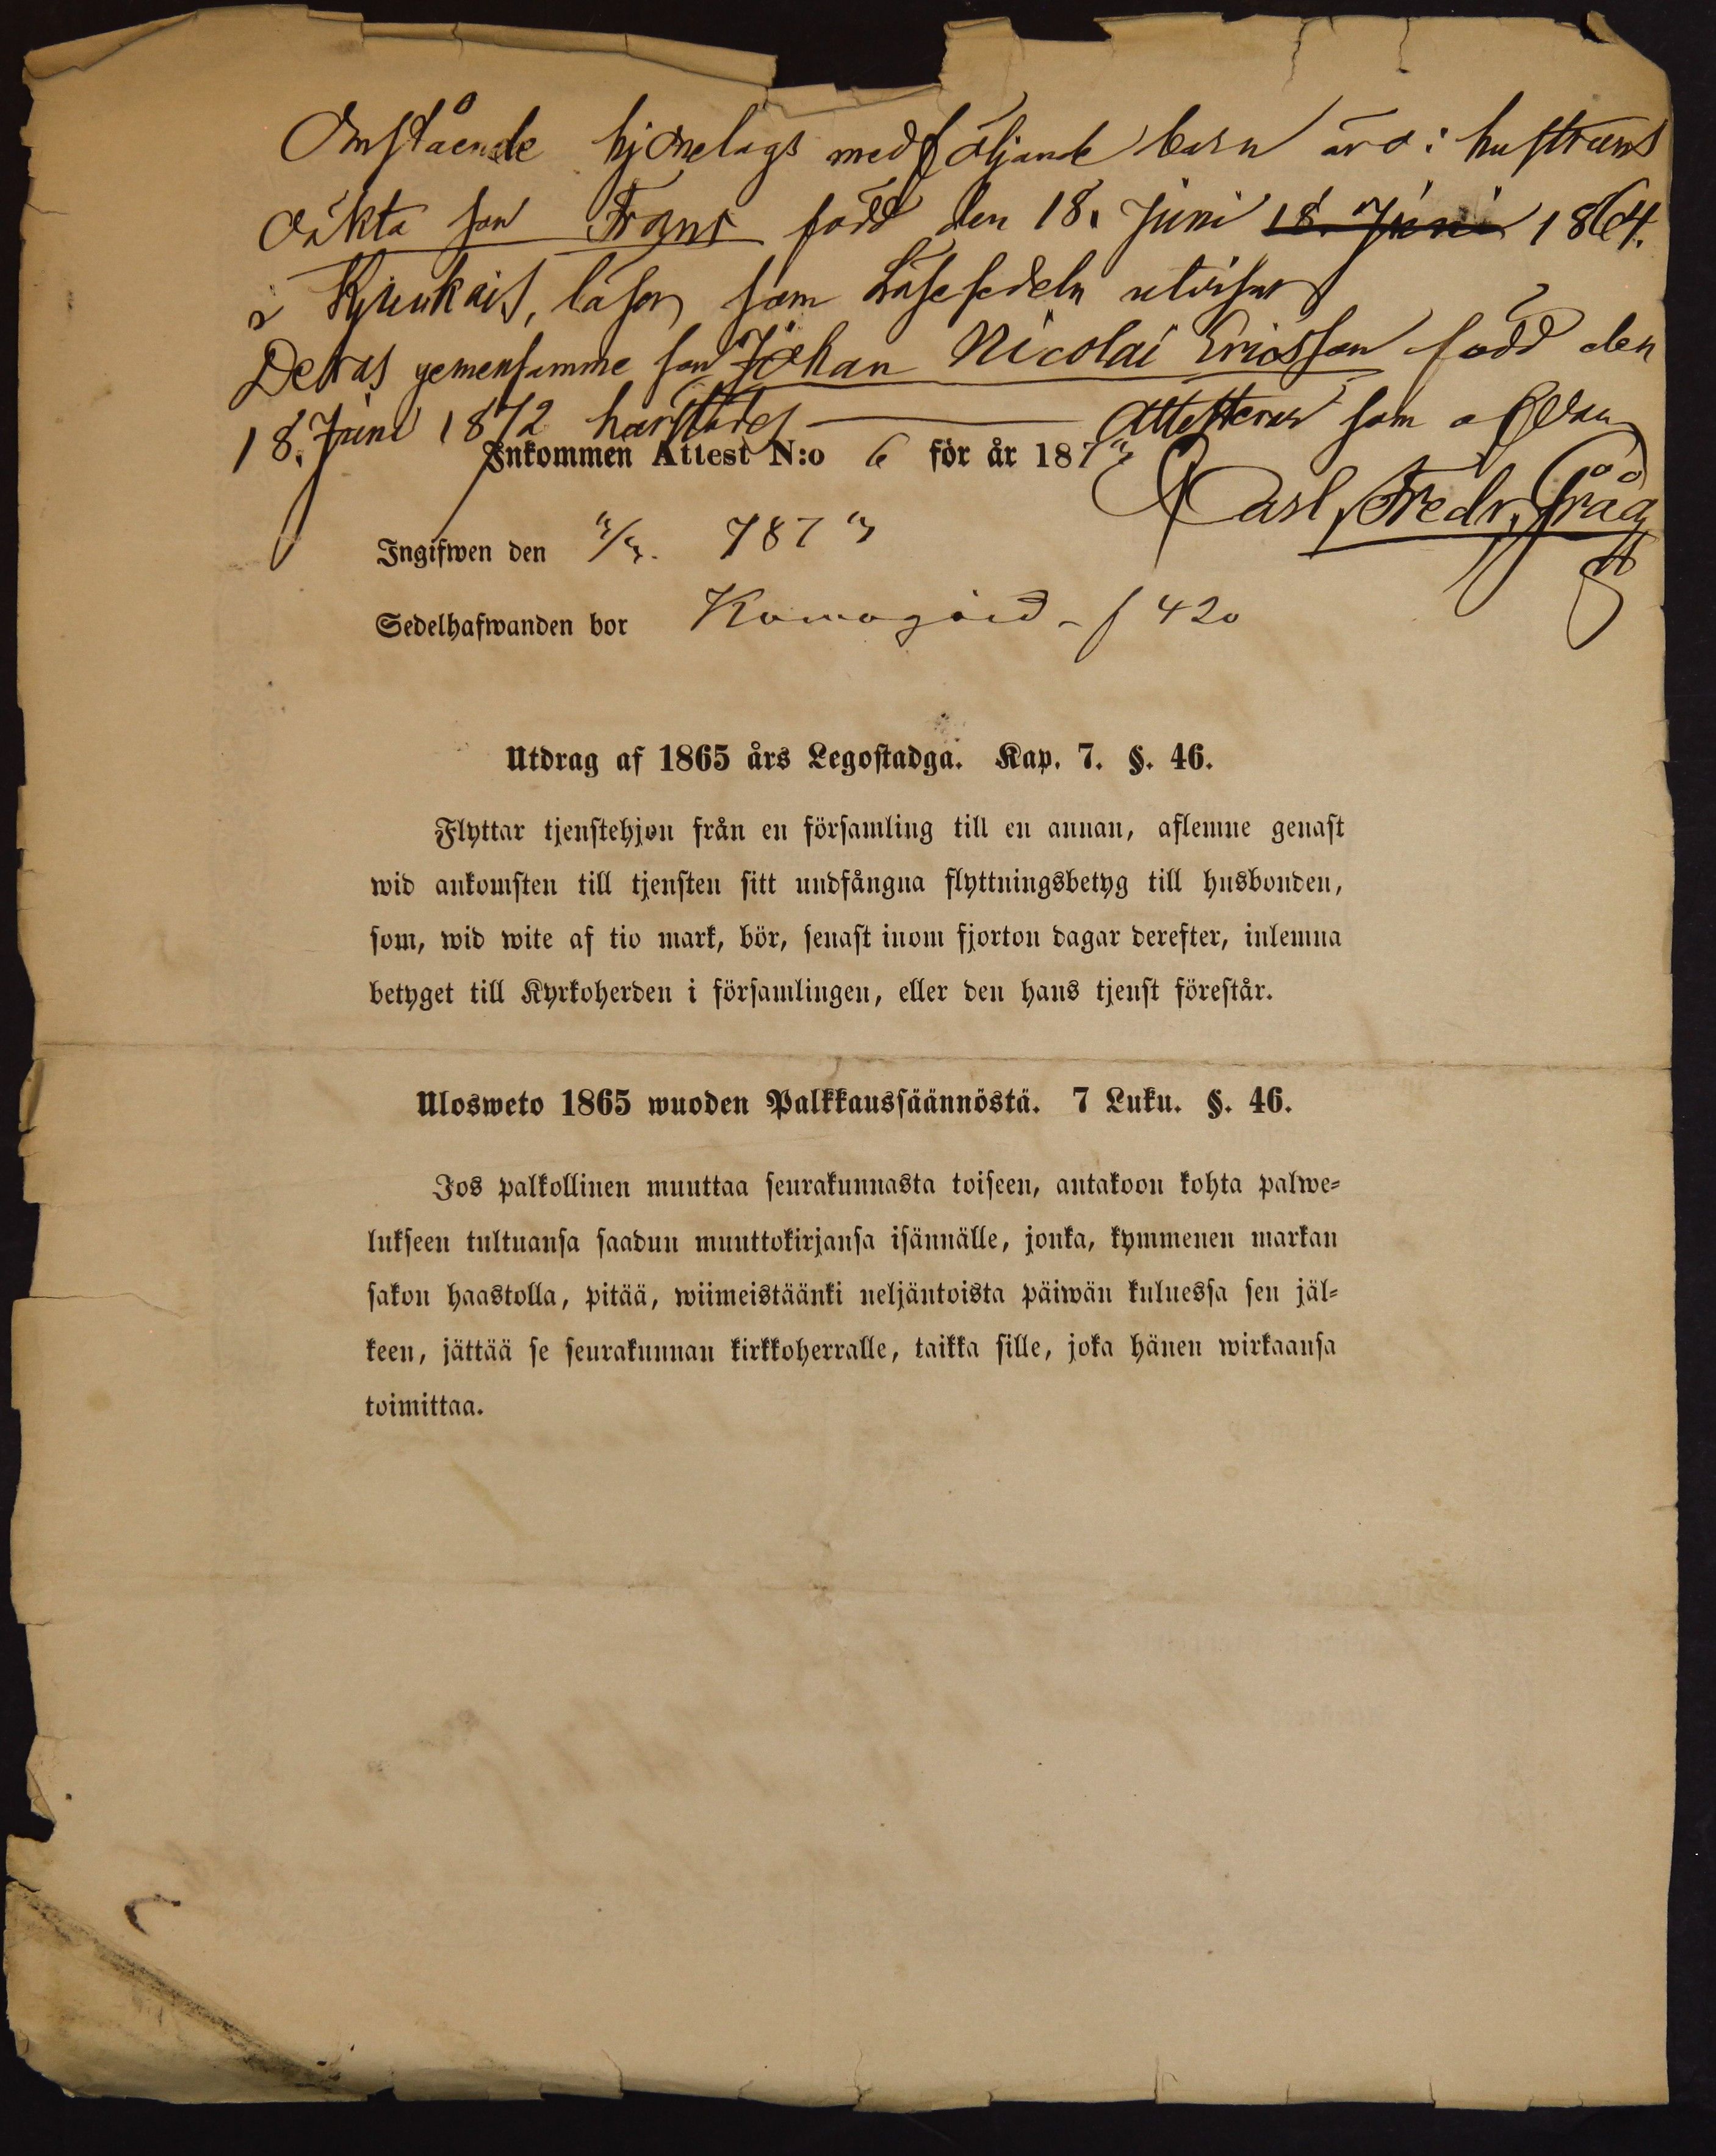 Omstående hjonelags medföljande barn äro: hustruns
oäkta son Frans född den 18. Juni 18. Juni 1864.
i Kjiukais, läser som Läsesedeln utvisar
Deras gemensamme son Johan Nicolai Ericsson född den
18. Juni 1872 härstädes ——— Attesterar som ofvan
Carl Fredr.
Inkommen Attest N:o 6 för år 1873
Ingifwen den 3/3. 1873
Sedelhafwanden bor 420
Utdrag af 1865 års Legostadga. Kap. 7. §. 46.
Flyttar tjenstehjon från en församling till en annan, aflemne genast
wid ankomsten till tjensten sitt undfångna flyttningsbetyg till husbonden,
som, wid wite af tio mark, bör, senast inom fjorton dagar derefter, inlemna
betyget till Kyrkoherden i församlingen, eller den hans tjenst förestår.
Ulosweto 1865 wuoden Palkkaussäännöstä. 7 Luku. §. 46.
Jos palkollinen muuttaa seurakunnasta toiseen, antakoon kohta palwe-
lukseen tultuansa saadun muuttokirjansa isännälle, jonka, kymmenen markan
sakon haastolla, pitää, wiimeistäänki neljäntoista päiwän kuluessa sen jäl-
keen, jättää se seurakunnan kirkkoherralle, taikka sille, joka hänen wirkaansa
toimittaa.